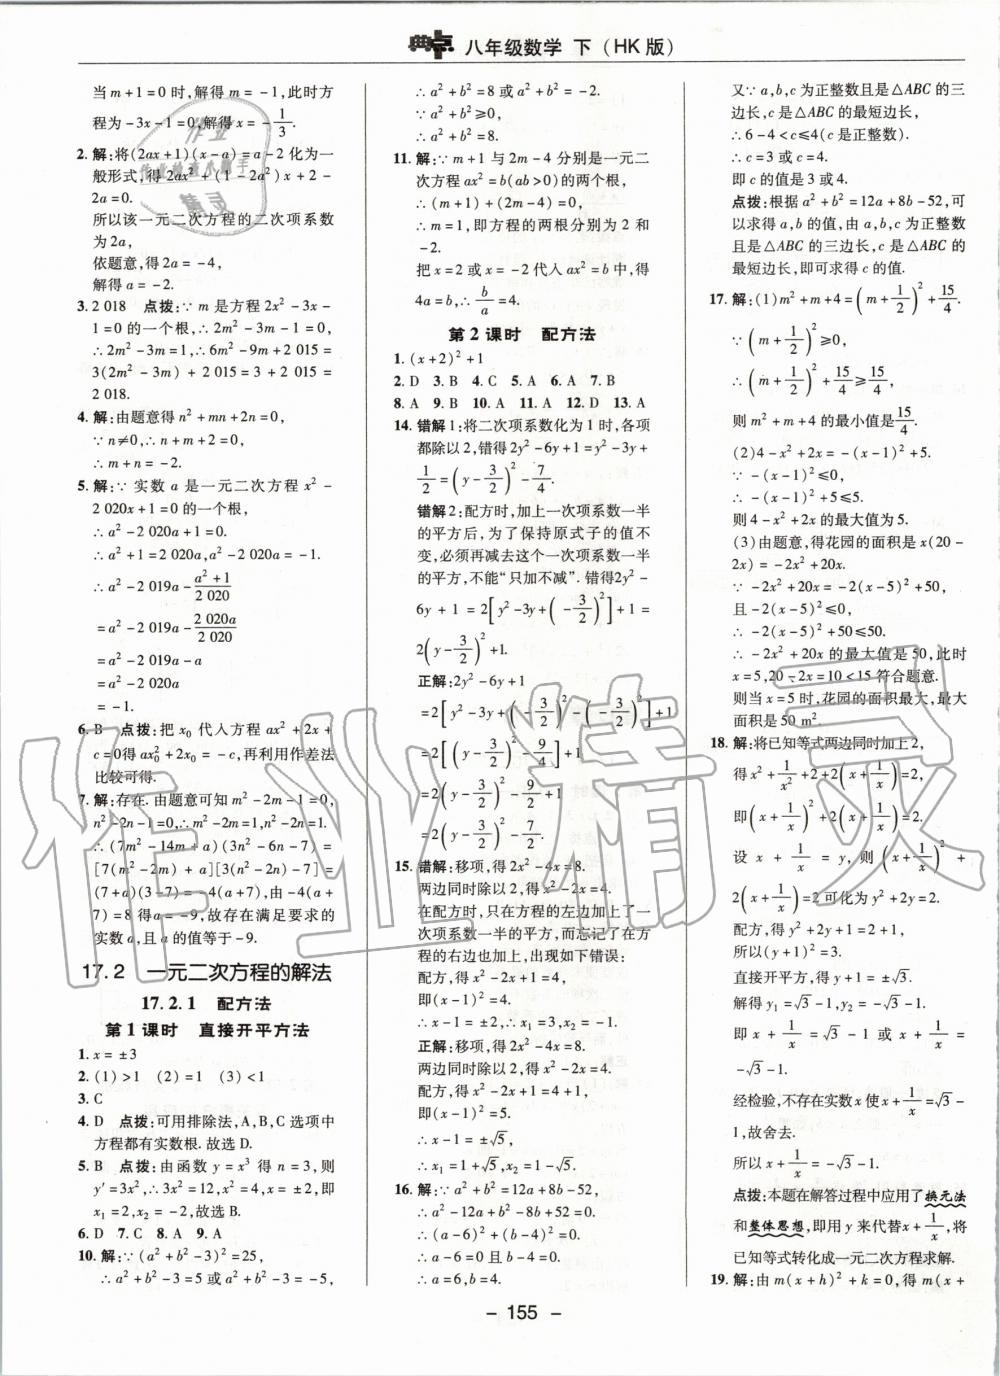 典点 八年级数学 下(HK版)
当m+1=0时,解得m=-1,此时方
程为-3x-1=0,解得x=-1/3.
2.解:将(2ax+1)(x-a)=a-2化为一
般形式,得2ax²+(1-2a²)x+2-
2a=0.
所以该一元二次方程的二次项系数
为2a,
依题意,得2a=-4,
解得a=-2.
3.2 018 点拨:∵m是方程2x²-3x-
1=0的一个根,∴2m²-3m-1=0,
∴2m²-3m=1,∴6m²-9m+2 015=
3(2m²-3m)+2 015=3+2 015=
2 018.
4.解:由题意得n²+mn+2n=0,
∵n≠0,∴n+m+2=0,
∴m+n=-2.
5.解:∵实数a是一元二次方程x²-
2 020x+1=0的一个根,
∴a²-2 020a+1=0.
∴a²+1=2 020a,a²-2 020a=-1.
∴a²-2 019a-(a²+1)/2 020
=a²-2 019a-2 020a/2 020
=a²-2 019a-a
=a²-2 020a
=-1.
6.B 点拨:把x₀代入方程ax²+2x+
c=0得ax₀²+2x₀=-c,再利用作差法
比较可得.
7.解:存在.由题意可知m²-2m-1=0,
n²-2n-1=0,∴m²-2m=1,n²-2n=1.
∴(7m²-14m+a)(3n²-6n-7)=
[7(m²-2m)+a][3(n²-2n)-7]=
(7+a)(3-7)=-4(7+a),由-4(a+
7)=8得a=-9,故存在满足要求的
实数a,且a的值等于-9.
17.2 一元二次方程的解法
17.2.1 配方法
第1课时 直接开平方法
1.x=±3
2.(1)>1 (2)=1 (3)<1
3.C
4.D 点拨:可用排除法,A,B,C选项中
方程都有实数根.故选D.
5.B 点拨:由函数y=x³得n=3,则
y′=3x²,∴3x²=12,x²=4,x=±2,即
x₁=2,x₂=-2,故选B.
6.D 7.C 8.A 9.A
10.解:∵(a²+b²-3)²=25,
∴a²+b²-3=5或a²+b²-3=-5,
∴a²+b²=8或a²+b²=-2.
∵a²+b²≥0,
∴a²+b²=8.
11.解:∵m+1与2m-4分别是一元二
次方程ax²=b(ab>0)的两个根,
∴(m+1)+(2m-4)=0,
∴m=1,即方程的两根分别为2和
-2.
把x=2或x=-2代入ax²=b中,得
4a=b,∴b/a=4.
第2课时 配方法
1.(x+2)²+1
2.D 3.B 4.C 5.A 6.A 7.B
8.A 9.B 10.A 11.A 12.D 13.A
14.错解1:将二次项系数化为1时,各项
都除以2,错得2y²-6y+1=y²-3y+
1/2=(y-3/2)²-7/4.
错解2:配方时,加上一次项系数一半
的平方后,为了保持原式子的值不
变,必须再减去这个一次项系数一半
的平方,不能“只加不减”.错得2y²-
6y+1=2[y²-3y+(-3/2)²]+1=
2(y-3/2)²+1.
正解:2y²-6y+1
=2[y²-3y+(-3/2)²-(-3/2)²]+1
=2[(y-3/2)²-9/4]+1
=2(y-3/2)²-9/2+1
=2(y-3/2)²-7/2.
15.错解:移项,得2x²-4x=8.
两边同时除以2,得x²-2x=4.
在配方时,只在方程的左边加上了一
次项系数一半的平方,而忘记了在方
程的右边也加上,出现如下错误:
配方,得x²-2x+1=4,
即(x-1)²=4.
∴x-1=±2,∴x₁=3,x₂=-1.
正解:移项,得2x²-4x=8.
两边同时除以2,得x²-2x=4.
配方,得x²-2x+1=4+1,
即(x-1)²=5.
∴x-1=±√5,
∴x₁=1+√5,x₂=1-√5.
16.解:∵a²+b²=12a+8b-52,
∴a²-12a+b²-8b+52=0.
∴(a-6)²+(b-4)²=0.
∴a-6=0且b-4=0.
∴a=6,b=4.
又∵a,b,c为正整数且是△ABC的三
边长,c是△ABC的最短边长,
∴6-4<c≤4(c是正整数).
∴c=3或c=4.
即c的值是3或4.
点拨:根据a²+b²=12a+8b-52,可
以求得a,b的值,由a,b,c为正整数
且是△ABC的三边长,c是△ABC的
最短边长,即可求得c的值.
17.解:(1)m²+m+4=(m+1/2)²+15/4.
∵(m+1/2)²≥0,
∴(m+1/2)²+15/4≥15/4,
则m²+m+4的最小值是15/4.
(2)4-x²+2x=-(x-1)²+5.
∵-(x-1)²≤0,
∴-(x-1)²+5≤5.
则4-x²+2x的最大值为5.
(3)由题意,得花园的面积是x(20-
2x)=-2x²+20x.
∵-2x²+20x=-2(x-5)²+50,
且-2(x-5)²≤0,
∴-2(x-5)²+50≤50.
∴-2x²+20x的最大值是50,此时
x=5,20-2x=10<15符合题意.
则当x=5时,花园的面积最大,最大
面积是50 m².
18.解:将已知等式两边同时加上2,
得x²+1/x²+2+2(x+1/x)=2,
即(x+1/x)²+2(x+1/x)=2.
设x+1/x=y,则(x+1/x)²+
2(x+1/x)=2可化为y²+2y=2.
配方,得y²+2y+1=2+1,
所以(y+1)²=3.
直接开平方,得y+1=±√3.
解得y₁=√3-1,y₂=-√3-1.
即x+1/x=√3-1或x+1/x=
-√3-1.
经检验,不存在实数x使x+1/x=√3-
1,故舍去.
所以x+1/x=-√3-1.
点拨:本题在解答过程中应用了换元法
和整体思想,即用y来代替x+1/x,将
已知等式转化成一元二次方程求解.
19.解:由m(x+h)²+k=0,得m(x+
- 155 -
作业精灵